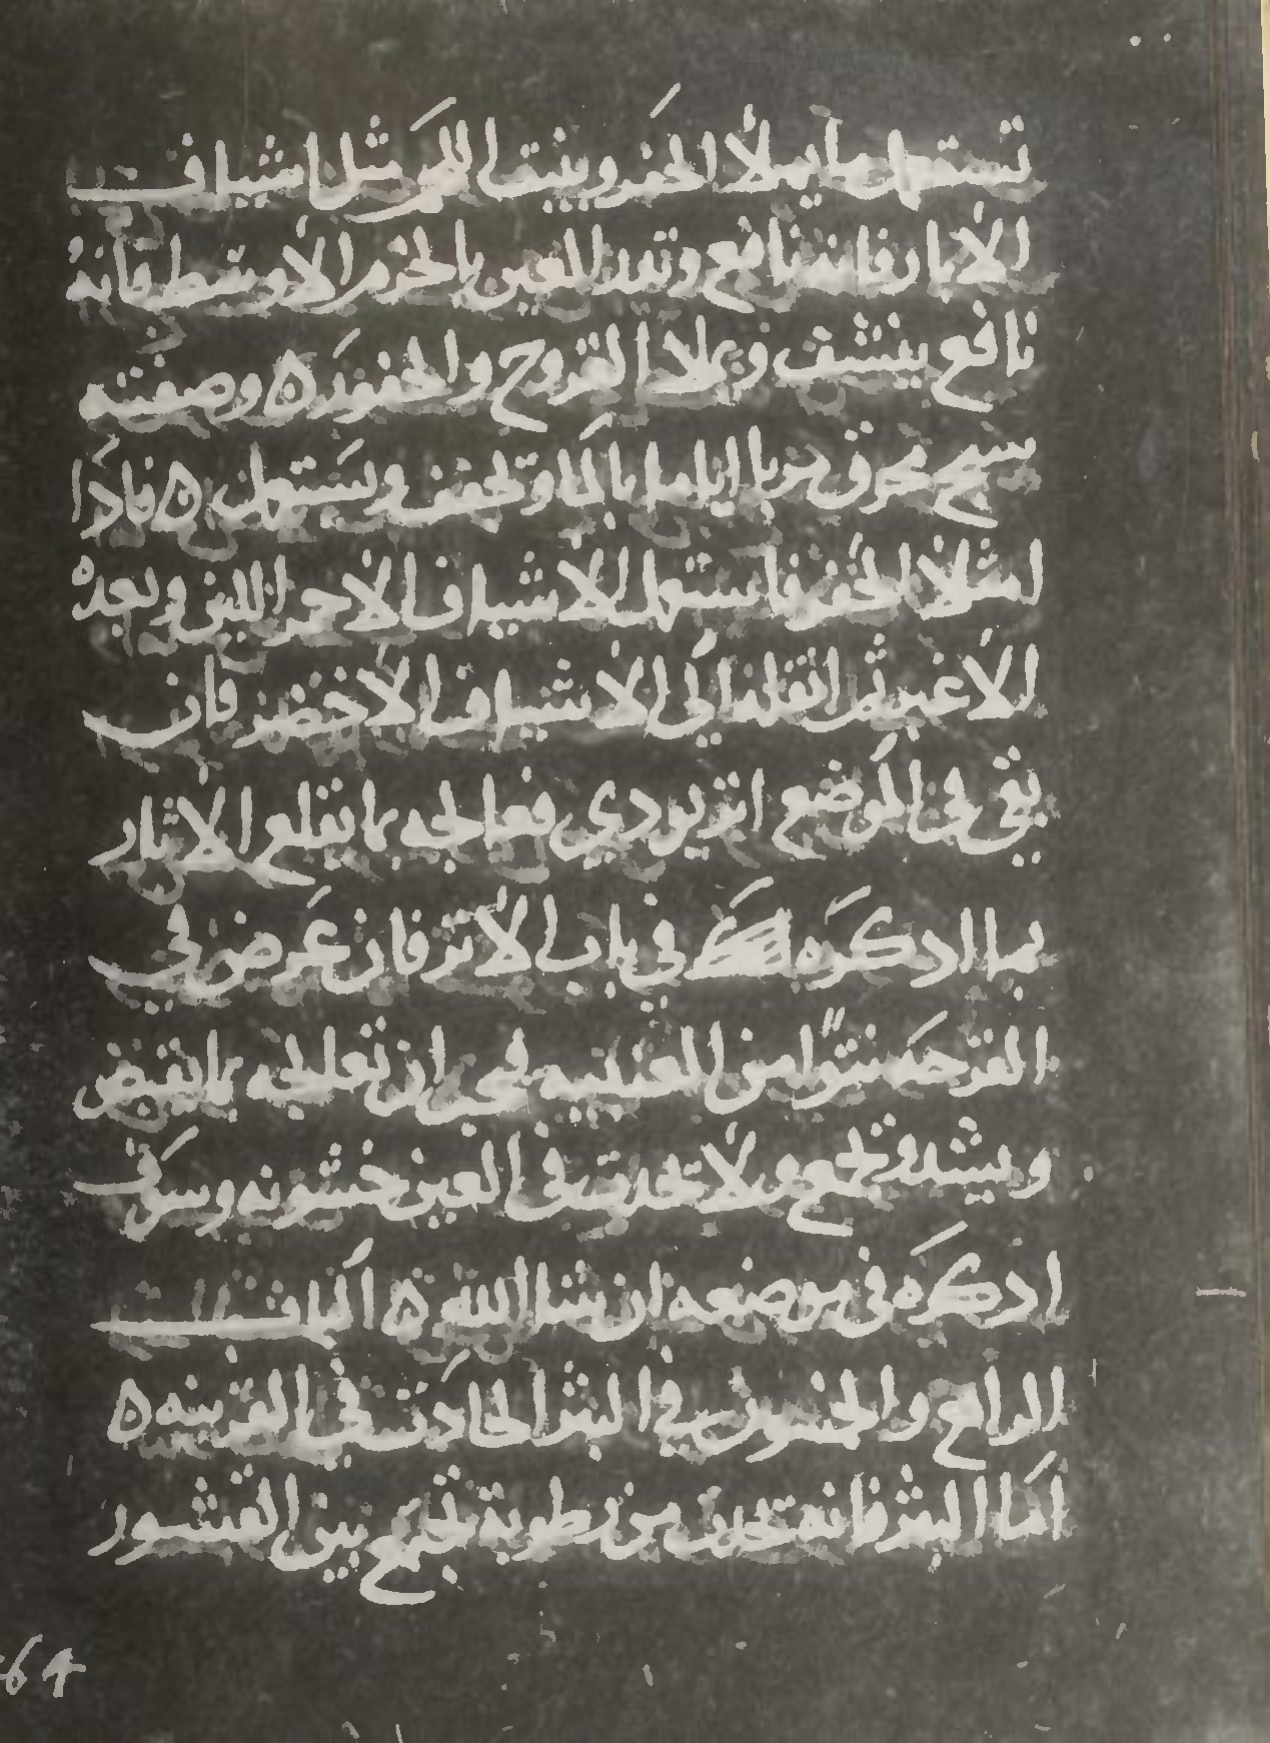 تستعمل ما يملأ الحفر وينبت اللحم مثل اشياف
الابار فانه نافع وتدر للعين بالحزم الاوسط فانه
نافع ينشف ويملا القروح والحفور ٥ وصفته
سبج محرق مربا اياما بالما وتجفف ويستعمل ٥ فادا
امتلات الحفر فاستعمل الاشياف الاحمر اللين وبعده
الاغبر ثم انقله الي الاشياف الاخضر فان
بقي في الموضع اثر يودي فعالجه بما يقلع الاثار
بما ادكره في باب الاثر فان عرض في
القرحه نتوا من العنبيه فيجب ان تعالجه بما يقبض
ويشد ويجمع ولا تحدث في العين خشونه وسوف
ادكره في موضعه ان شا الله ٥ الباب
الرابع والخمسون في البثر الحادث في القرنيه ٥
اما البثر فانه تحدث من رطوبة تجتمع بين القشور
64